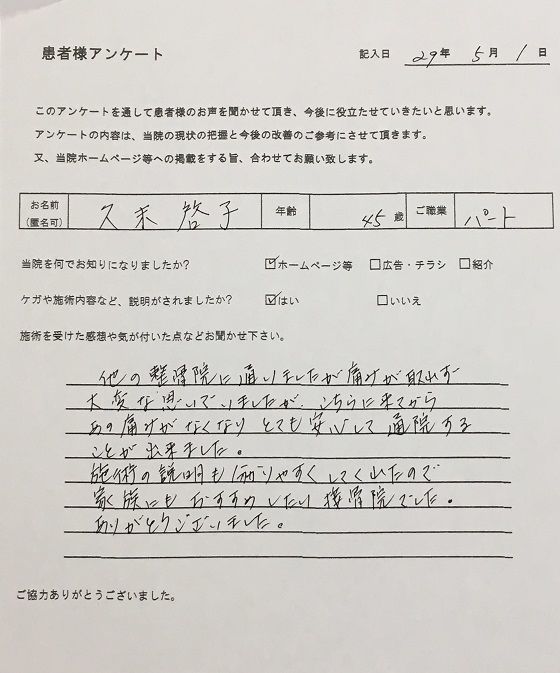 患者様アンケート
記入日 29年 5月 1日
このアンケートを通して患者様のお声を聞かせて頂き、今後に役立たせていきたいと思います。
アンケートの内容は、当院の現状の把握と今後の改善のご参考にさせて頂きます。
又、当院ホームページ等への掲載をする旨、合わせてお願い致します。
お名前 (匿名可) 久末 啓子 年齢 45歳 ご職業 パート
当院を何でお知りになりましたか? ☑ホームページ等 □広告・チラシ □紹介
ケガや施術内容など、説明がされましたか? ☑はい □いいえ
施術を受けた感想や気が付いた点などお聞かせ下さい。
他の整骨院に通いましたが痛みが取れず
大変な思いでいましたが、こちらに来てから
あの痛みがなくなり とても安心して通院する
ことが出来ました。
施術の説明も分かりやすくしてくれたので
家族にもおすすめしたい接骨院でした。
ありがとうございました。
ご協力ありがとうございました。